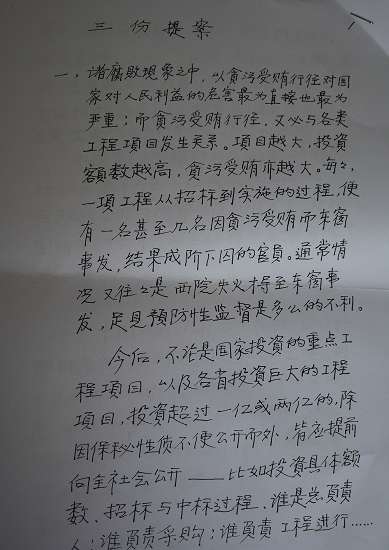 三份提案
一，诸腐敗現象之中，以貪污受贿行径对囯
家对人民利益的危害最为直接也最为
严重；而貪污受贿行径，又必与各类
工程項目发生关系。項目越大，投資
額数越高，貪污受贿亦越大。每々，
一項工程从招标到实施的过程，便
有一名甚至几名因貪污受贿而东窗
事发，结果成阶下囚的官員。通常情
况又往々是西院失火
东窗事
发，足見預防性监督是多么的不利。
今后，不论是囯家投資的重点工
程項目，以及各省投資巨大的工程
項目，投資超过一亿或两亿的，除
因保秘性质不便公开而外，皆应提前
向全社会公开——比如投資具体額
数、招标与中标过程、谁是总負責
人；谁負责采购；谁負責工程进行……